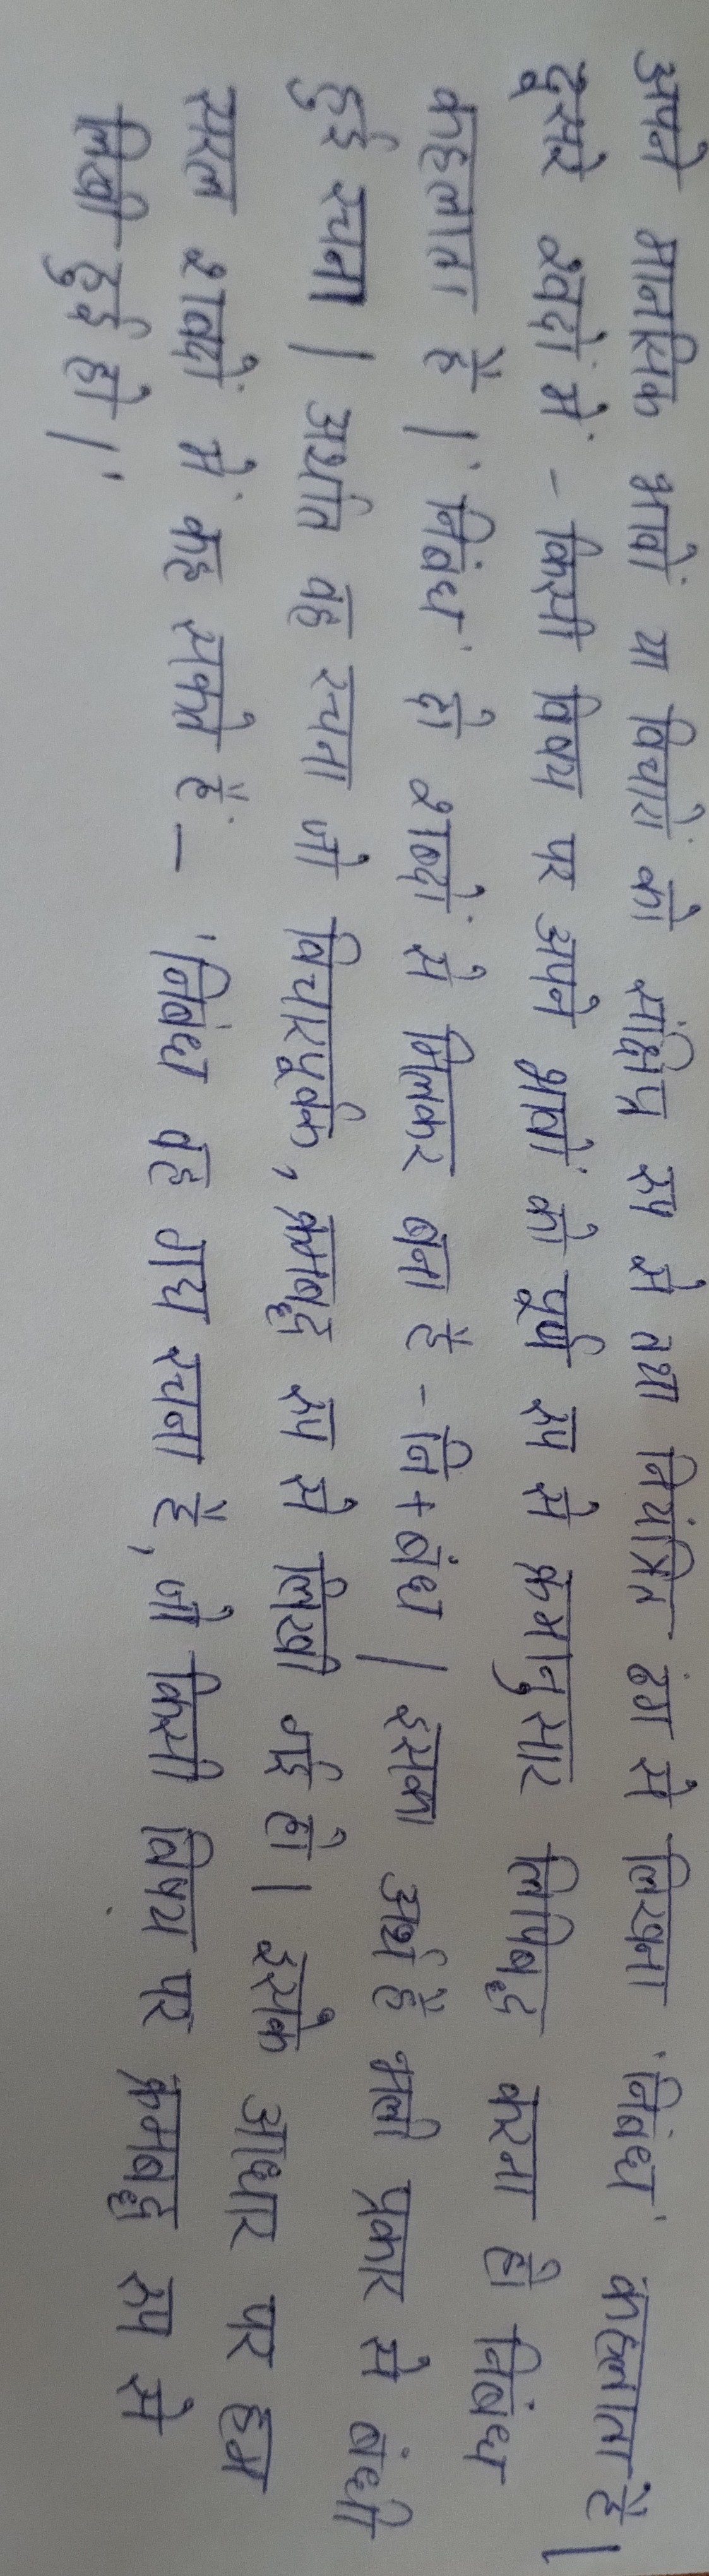 अपने मानसिक भावों या विचारों को संक्षिप्त रुप से तथा नियंत्रित ढंग से लिखना 'निबंध' कहलाता है|
दूसरे श्वदों में - किसी विषय पर अपने भावों को पूर्ण रुप से क्रमानुसार लिपिबद्ध करना ही निबंध
कहलाता है | 'निबंध' दो शब्दों से मिलकर बना है - नि + बंध | इसका अर्थ है भली प्रकार से बंधी
हुई रचना | अर्थात वह रचना जो विचारपूर्वक, क्रमबद्ध रुप से लिखी गई हो | इसके आधार पर हम
सरल शवदों में कह सकते हैं - 'निबंध वह गद्य रचना है, जो किसी विषय पर क्रमबद्ध रुप से
लिखी हुई हो |'